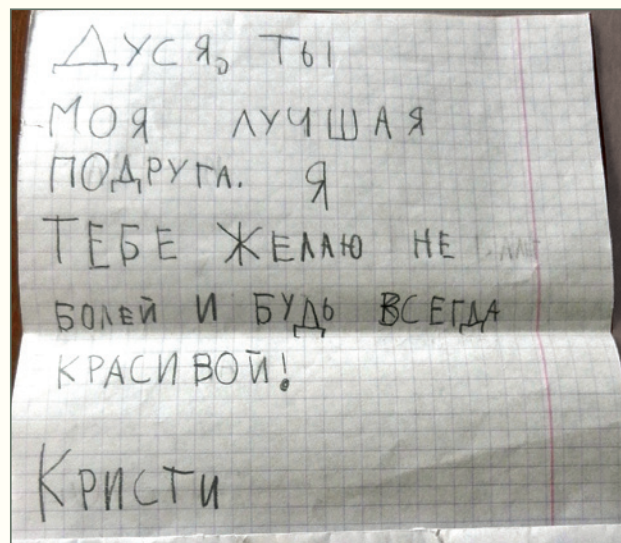 ДУСЯ, ТЫ
МОЯ ЛУЧШАЯ
ПОДРУГА. Я
ТЕБЕ ЖЕЛАЮ НЕ
БОЛЕЙ И БУДЬ ВСЕГДА
КРАСИВОЙ!
КРИСТИ